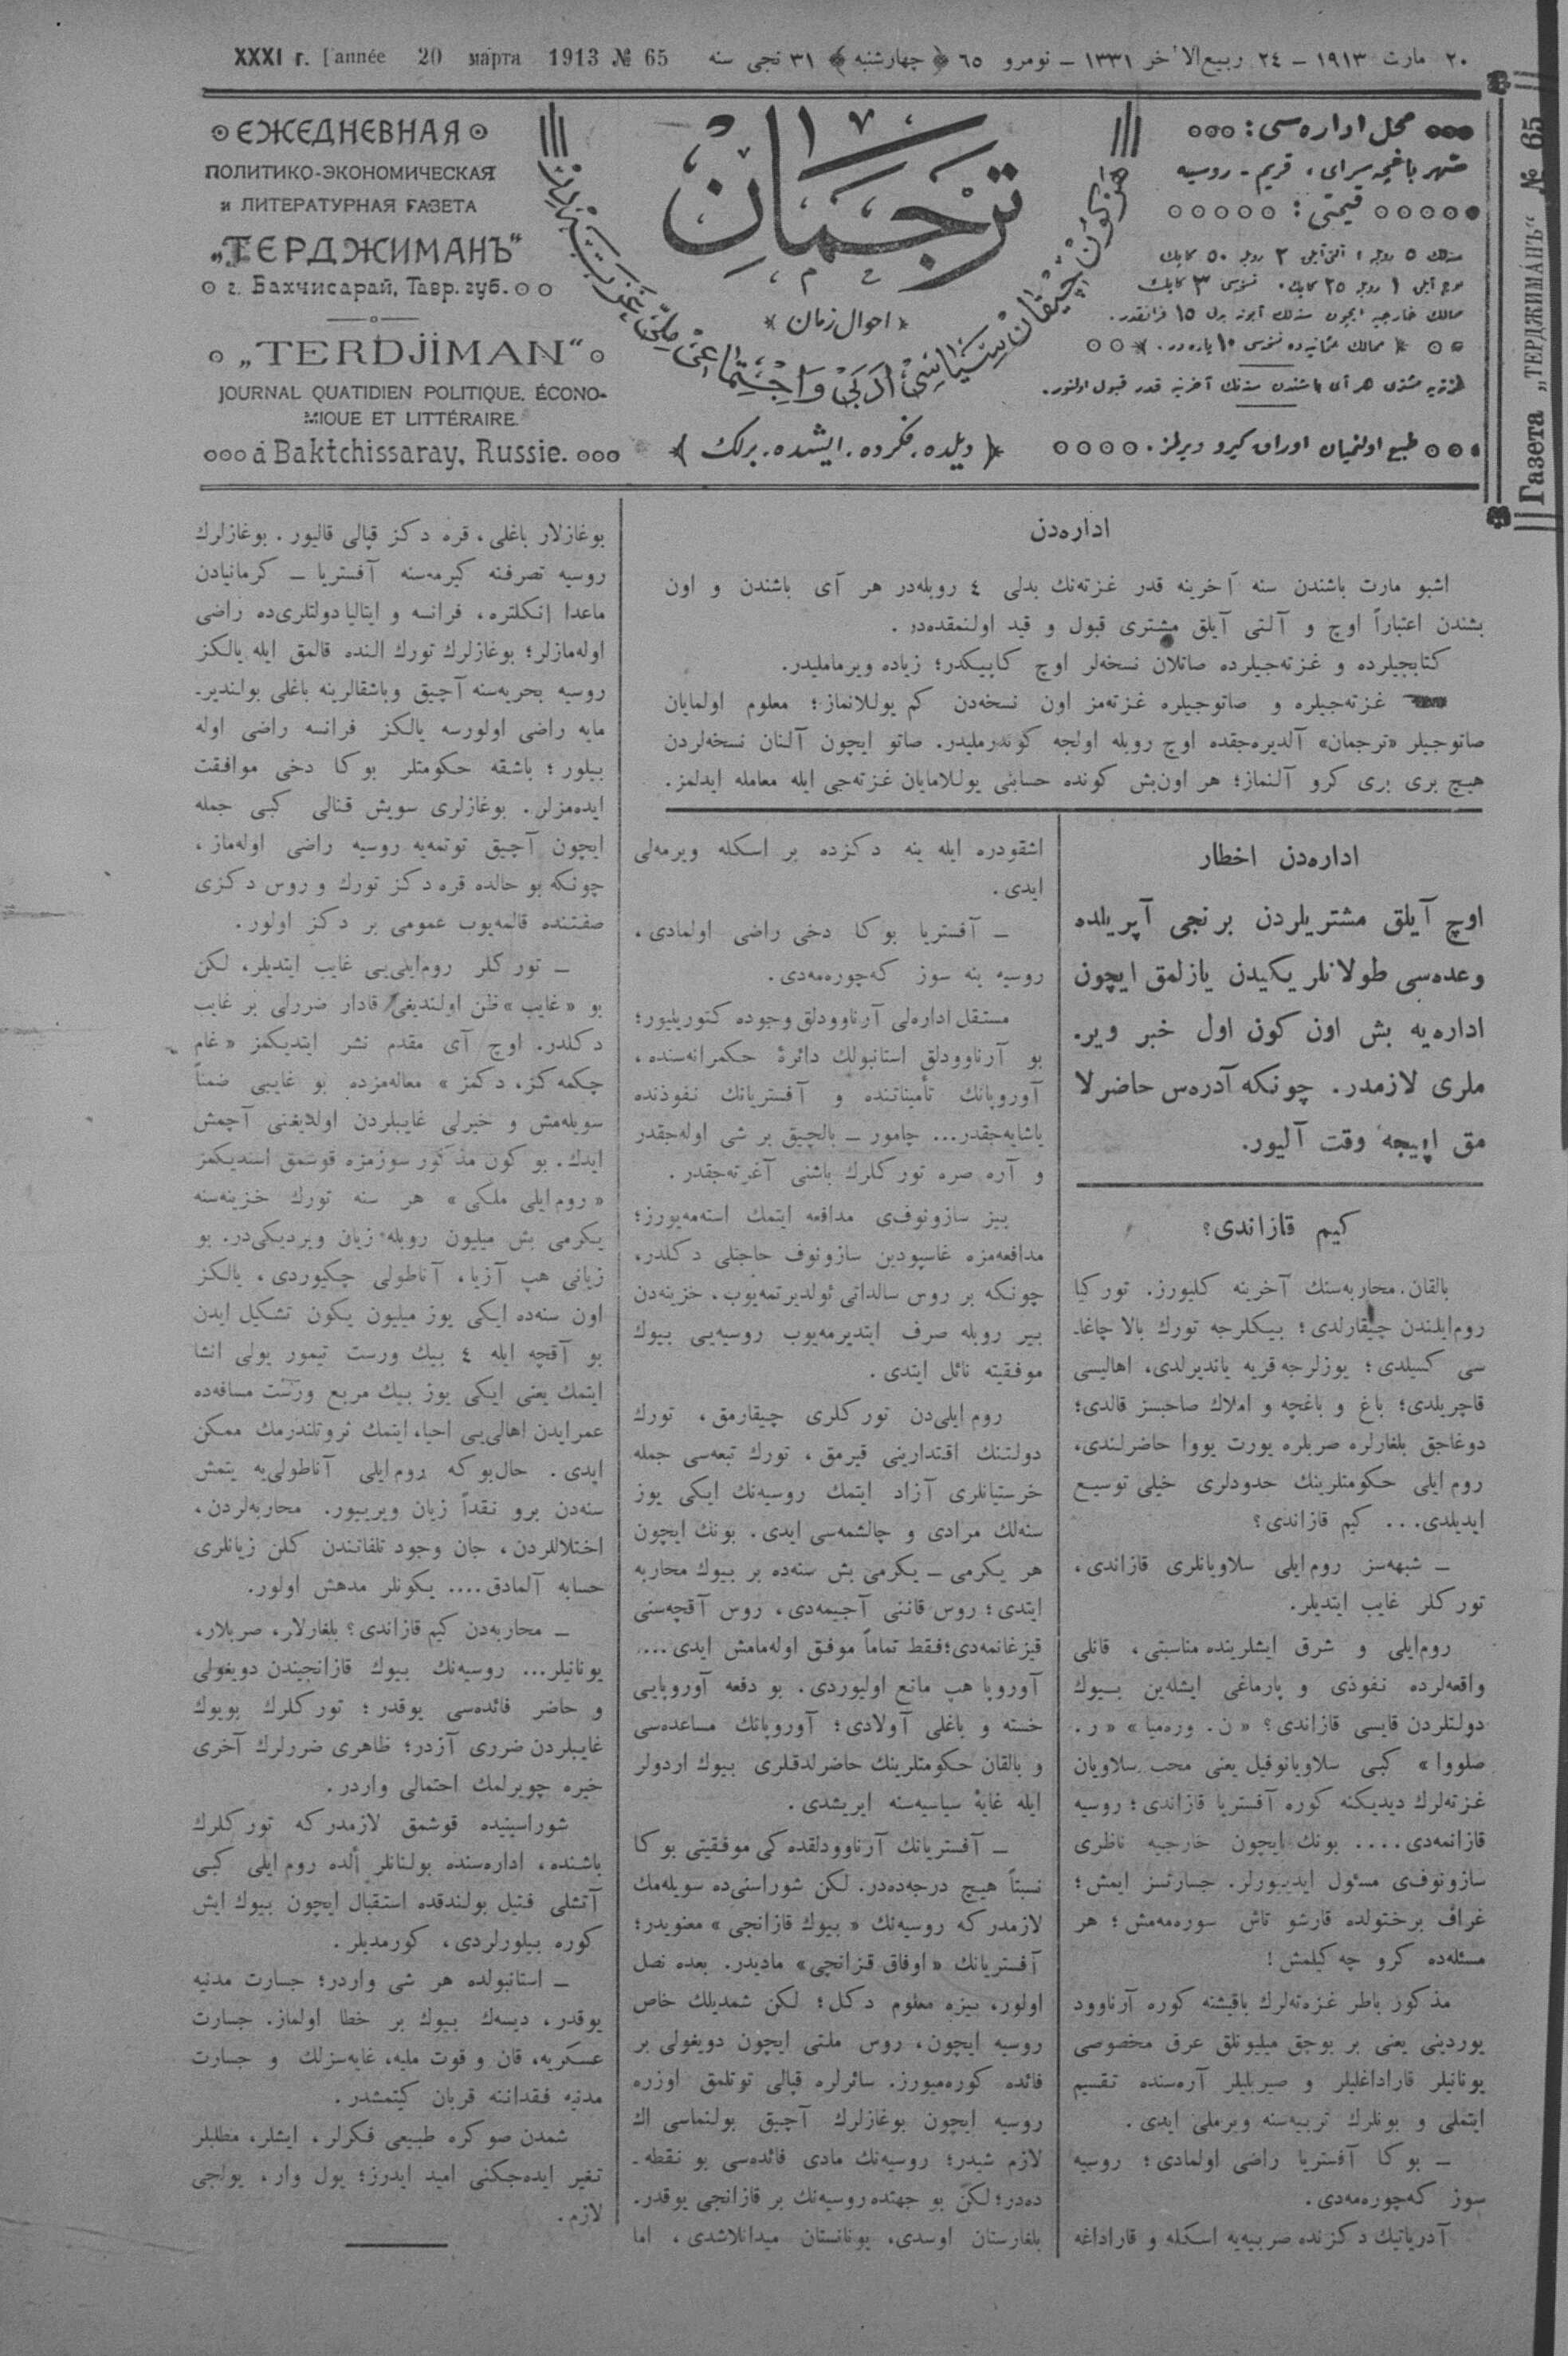 XXXI г. l'année 20 марта 1913 № 65
٢٠ مارت ١٩١٣ — ٢٤ ربيع الآخر ١٣٣١ — نومرو ٦٥ ﴿ چهارشنبه ﴾ ٣١ نجى سنه
Газета „ТЕРДЖИМАНЪ“ № 65
ЕЖЕДНЕВНАЯ
ПОЛИТИКО-ЭКОНОМИЧЕСКАЯ
и ЛИТЕРАТУРНАЯ ГАЗЕТА
„ТЕРДЖИМАНЪ“
г. Бахчисарай, Тавр. губ.
„TERDJIMAN“
JOURNAL QUATIDIEN POLITIQUE, ÉCONO-
MIQUE ET LITTÉRAIRE.
á Baktchissaray, Russie.
ترجمان
﴿ احوال زمان ﴾
هر كون چيقان سياسى، ادبى و اجتماعى ملى غزته‌در
﴿ ديلده، فكرده، ايشده، برلك ﴾
محل اداره‌سى:
شهر باغچه‌سراى، قريم - روسيه
قيمتى:
سنه‌لك ٥ روبله، آلتى آيلق ٢ روبله ٥٠ كاپيك
اوچ آيلق ١ روبله ٢٥ كاپيك، نسخه‌سى ٣ كاپيك
ممالك خارجيه ايچون سنه‌لك آبونه بدلى ١٥ فرانقدر.
ممالك عثمانيه‌ده نسخه‌سى ١٠ پاره‌در.
غزته‌يه مشترى هر آى باشندن سنه‌نك آخرينه قدر قبول اولنور.
طبع اولنميان اوراق كيرو ويرلمز.
اداره‌دن
اشبو مارت باشندن سنه آخرينه قدر غزته‌نك بدلى ٤ روبله‌در هر آى باشندن و اون
بشندن اعتباراً اوچ و آلتى آيلق مشترى قبول و قيد اولنمقده‌در.
كتابجيلرده و غزته‌جيلرده صاتلان نسخه‌لر اوچ كاپيكدر؛ زياده ويرمامليدر.
غزته‌جيلره و صاتوجيلره غزته‌مز اون نسخه‌دن كم يوللانماز؛ معلوم اولمايان
صاتوجيلر «ترجمان» آلديره‌جقده اوچ روبله اولجه كوندرمليدر. صاتو ايچون آلنان نسخه‌لردن
هيچ برى برى كرو آلنماز؛ هر اون‌بش كونده حسابنى يوللامايان غزته‌جى ايله معامله ايدلمز.
اداره‌دن اخطار
اوچ آيلق مشتريلردن برنجى آپريلده
وعده‌سى طولانلر يكيدن يازلمق ايچون
اداره‌يه بش اون كون اول خبر وير-
ملرى لازمدر. چونكه آدره‌س حاضرلا
مق اييجه وقت آليور.
كيم قازاندى؟
بالقان محاربه‌سنك آخرينه كليورز. توركيا
روم‌ايلندن چيقارلدى؛ بيكلرجه تورك بالا چاغا-
سى كسيلدى؛ يوزلرجه قريه يانديرلدى، اهاليسى
قاچريلدى؛ باغ و باغچه و املاك صاحبسز قالدى؛
دوغاجق بلغارلره صربلره يورت يووا حاضرلندى،
روم ايلى حكومتلرينك حدودلرى خيلى توسيع
ايديلدى... كيم قازاندى؟
— شبهه‌سز روم‌ايلى سلاويانلرى قازاندى،
توركلر غايب ايتديلر.
روم‌ايلى و شرق ايشلرينده مناسبتى، قانلى
واقعه‌لرده نفوذى و پارماغى ايشله‌ين بيوك
دولتلردن قايسى قازاندى؟ «ن. وره‌ميا» «ر.
صلووا» كبى سلاويانوفيل يعنى محب سلاويان
غزته‌لرك ديديكنه كوره آفستريا قازاندى؛ روسيه
قازانمه‌دى.... بونك ايچون خارجيه ناظرى
سازونوف‌ى مسئول ايديیورلر. جسارتسز ايمش؛
غراف برختولده قارشو تاش سوره‌مه‌مش؛ هر
مسئله‌ده كرو چه‌كيلمش!
مذكور پاطر غزه‌ته‌لرك باقيشنه كوره آرناوود
يوردينى يعنى بر بوجق ميليونلق عرق مخصوصى
يونانيلر قاراداغليلر و صيربليلر آره‌سنده تقسيم
ايتملى و بونلرك تربيه‌سنه ويرملى ايدى.
— بوكا آفستريا راضى اولمادى؛ روسيه
سوز كه‌چوره‌مه‌دى.
آدرياتيك دكزنده صربيه‌يه اسكله و قاراداغه
اشقودره ايله ينه دكزده بر اسكله ويرمه‌لى
ايدى.
— آفستريا بوكا دخى راضى اولمادى،
روسيه ينه سوز كه‌چوره‌مه‌دى.
مستقل اداره‌لى آرناوودلق وجوده كتوريليور؛
بو آرناوودلق استانبولك دائرهٔ حكمرانه‌سنده،
آوروپانك تأميناتنده و آفستريانك نفوذنده
ياشايه‌جقدر... چامور — بالچيق بر شى اوله‌جقدر
و آره صره توركلرك باشنى آغرته‌جقدر.
بيز سازونوف‌ى مدافعه ايتمك استه‌مه‌يورز؛
مدافعه‌مزه غاسپودين سازونوف حاجتلى دكلدر،
چونكه بر روس سالداتى ئولديرتمه‌يوب، خزينه‌دن
بير روبله صرف ايتديرمه‌يوب روسيه‌يى بيوك
موفقيته نائل ايتدى.
روم ايلى‌دن توركلرى چيقارمق، تورك
دولتنك اقتدارينى قيرمق، تورك تبعه‌سى جمله
خرستيانلرى آزاد ايتمك روسيه‌نك ايكى يوز
سنه‌لك مرادى و چالشمه‌سى ايدى. بونك ايچون
هر يكرمى — يكرمى بش سنه‌ده بر بيوك محاربه
ايتدى؛ روس قاننى آجيمه‌دى، روس آقچه‌سنى
قيزغانمه‌دى؛ فقط تماماً موفق اوله‌مامش ايدى....
آوروپا هپ مانع اوليوردى. بو دفعه آوروپايى
خسته و باغلى آولادى؛ آوروپانك مساعده‌سى
و بالقان حكومتلرينك حاضرلدقلرى بيوك اردولر
ايله غايهٔ سياسيه‌سنه ايريشدى.
— آفستريانك آرناوودلقده‌كى موفقيتى بوكا
نسبتاً هيچ درجه‌ده‌در. لكن شوراسنى‌ده سويله‌مك
لازمدر كه روسيه‌نك «بيوك قازانجى» معنويدر؛
آفستريانك «اوفاق قزانچى» ماديدر. بعده نصل
اولور، بيزه معلوم دكل؛ لكن شمديلك خاص
روسيه ايچون، روس ملتى ايچون دويغولى بر
فائده كوره‌ميورز. سائرلره قپالى توتلمق اوزره
روسيه ايچون بوغازلرك آچيق بولنماسى اك
لازم شيدر؛ روسيه‌نك مادى فائده‌سى بو نقطه-
ده‌در؛ لكن بو جهتده روسيه‌نك بر قازانجى يوقدر.
بلغارستان اوسدى، يونانستان ميدانلاشدى، اما
بوغازلار باغلى، قره دكز قپالى قاليور. بوغازلرك
روسيه تصرفنه كيرمه‌سنه آفستريا — كرمانيادن
ماعدا انكلتره، فرانسه و ايتاليا دولتلرى‌ده راضى
اوله‌مازلر؛ بوغازلرك تورك النده قالمق ايله يالكز
روسيه بحريه‌سنه آچيق وباشقالرينه باغلى بولندير-
مايه راضى اولورسه يالكز فرانسه راضى اوله
بيلور؛ باشقه حكومتلر بوكا دخى موافقت
ايده‌مزلر. بوغازلرى سويش قنالى كبى جمله
ايچون آچيق توتمه‌يه روسيه راضى اوله‌ماز،
چونكه بو حالده قره دكز تورك و روس دكزى
صفتنده قالمه‌يوب عمومى بر دكز اولور.
— توركلر روم‌ايلى‌يى غايب ايتديلر، لكن
بو «غايب» ظن اولنديغى قادار ضررلى بر غايب
دكلدر. اوچ آى مقدم نشر ايتديكمز «غام
چكمه‌كز، دكمز» مقاله‌مزده بو غايبى ضمناً
سويله‌مش و خيرلى غايبلردن اولديغنى آچمش
ايدك. بو كون مذكور سوزمزه قوشمق استديكمز
«روم ايلى ملكى» هر سنه تورك خزينه‌سنه
يكرمى بش ميليون روبله زيان ويرديكى‌در. بو
زيانى هپ آزيا، آناطولى چكيوردى، يالكز
اون سنه‌ده ايكى يوز ميليون يكون تشكيل ايدن
بو آقچه ايله ٤ بيك ورست تيمور يولى انشا
ايتمك يعنى ايكى يوز بيك مربع ورست مسافه‌ده
عمر ايدن اهالى‌يى احيا، ايتمك ثروتلندرمك ممكن
ايدى. حال‌بوكه روم ايلى آناطولى‌يه يتمش
سنه‌دن برو نقداً زيان ويريیور. محاربه‌لردن،
اختلاللردن، جان وجود تلفاتندن كلن زيانلرى
حسابه آلمادق.... يكونلر مدهش اولور.
— محاربه‌دن كيم قازاندى؟ بلغارلار، صربلار،
يونانيلر... روسيه‌نك بيوك قازانجيندن دويغولى
و حاضر فائده‌سى يوقدر؛ توركلرك بويوك
غايبلردن ضررى آزدر؛ ظاهرى ضررلرك آخرى
خيره چويرلمك احتمالى واردر.
شوراسنيده قوشمق لازمدر كه توركلرك
باشنده، اداره‌سنده بولنانلر ألده روم ايلى كبى
آتشلى فتيل بولندقده استقبال ايچون بيوك ايش
كوره بيلورلردى، كورمديلر.
— استانبولده هر شى واردر؛ جسارت مدنيه
يوقدر، ديسه‌ك بيوك بر خطا اولماز. جسارت
عسكريه، قان و قوت مليه، غايه‌سزلك و جسارت
مدنيه فقداننه قربان كيتمشدر.
شمدن صوكره طبيعى فكرلر، ايشلر، مطلبلر
تغير ايده‌جكنى اميد ايدرز؛ يول وار، يولجى
لازم.